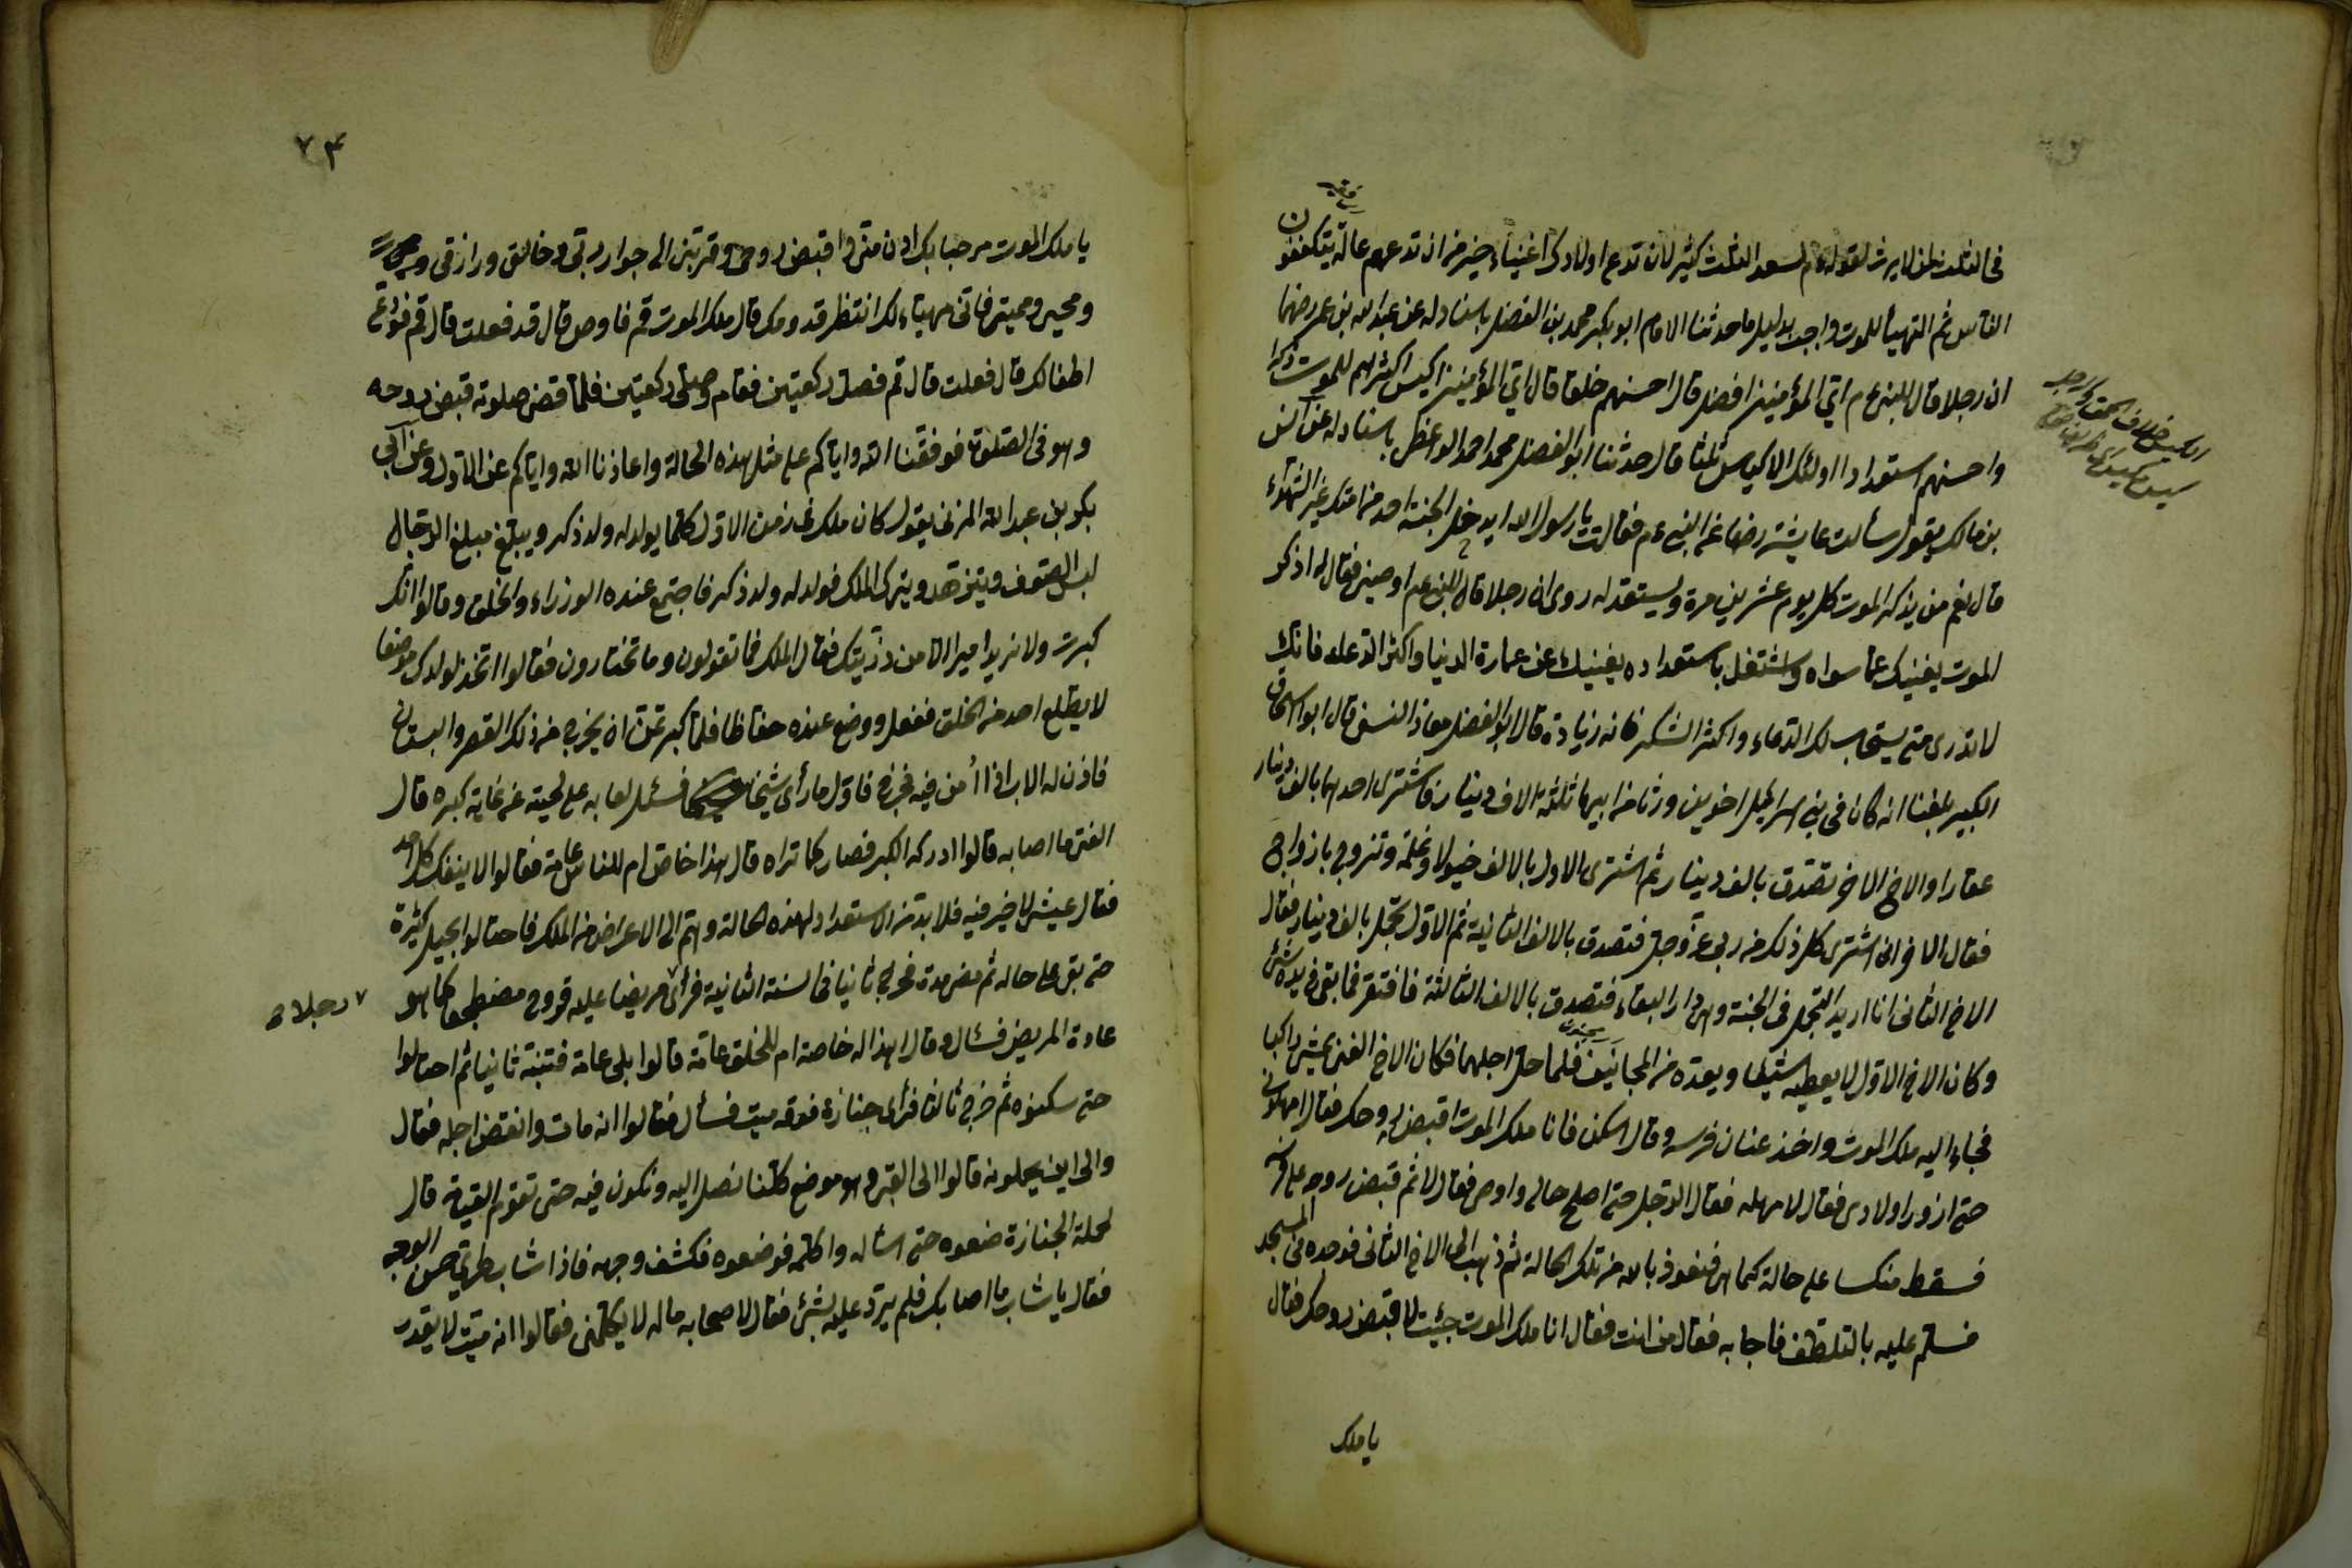 في الثلث لمن لا يرث لقوله ءم لسعد الثلث كثير لان تدع اولادك اغنياء خير من ان تدعهم عالة يتكففون
الناس ثم التهيأ للموت واجب بدليل ما حدثنا الامام ابو بكر محمد بن الفضل باسناد له عن عبد الله بن عمر رضهما
ان رجلا قال للنبي ءم اي المؤمنين افضل قال احسنهم خلقا قال اي المؤمنين اكيس قال اكثرهم للموت ذكرا
واحسنهم استعدادا اولئك الاكياس ثلثا قال حدثنا ابو الفضل محمد احمد الواعظ باسناد له عن انس
بن مالك يقول سألت عايشة رضها عن النبي ءم فقالت يا رسول الله ايدخل الجنة احد من امتك غير الشهداء
قال نعم من يذكر الموت كل يوم عشرين مرة ويستعد له روى ان رجلا قال للنبي عم اوصني فقال له اذكر
الموت يغنيك عما سواه واشتغل باستعداده يغنيك عن عمارة الدنيا واكثر الدعاء فانك
لا تدرى متى يستجاب لك الدعاء واكثر الشكر فانه زيادة قال ابو الفضل معاذ النسفى قال ابو اسحاق
الكبير بلغنا انه كان فى بني اسرائيل اخوين ورثا من ابيهما ثلثة الاف دينار فاشترى احدهما بالف دينار
عقارا والاخ الاخر تصدق بالف دينار ثم اشترى الاول بالالف خيولا وغلمة وتزوج بازواج
فقال الاخر انى اشترى كل ذلك من ربى عز وجل فتصدق بالالف الثانية ثم الاول تجمل بالف دينار فقال
الاخ الثانى انا اريد التجمل فى الجنة وهى دار البقاء فتصدق بالالف الثالثة فافتقر فما بقى فى يده شئ
وكان الاخ الاول لا يعطيه شيئا ويعده من المجانين فلما حل اجلهما فكان الاخ الغنى يمشى راكبا
فجاء اليه ملك الموت واخذ عنان فرسه وقال اسكن فانا ملك الموت اقبض روحك فقال امهلونى
حتى ازور اولادى فقال لا مهلة فقال الرجل حتى اصلح حالى واوصى فقال لا ثم قبض روحه على فرسه
فسقط منكسا على حالة كما هى فنعوذ بالله من تلك الحالة ثم ذهب الى الاخ الثانى فوجده فى المسجد
فسلم عليه بالتلطف فاجابه فقال من انت فقال انا ملك الموت جئت لاقبض روحك فقال
يا ملك
۷۴
يا ملك الموت مرحبا بك ادن منى واقبض روحى وقربنى الى جوار ربى وخالقى ورازقى
ومحيى ومميتى فانى مهياء لك انتظر قدومك قال ملك الموت قم فاوص قال قد فعلت قال قم فودع
اطفالك قال فعلت قال قم فصل ركعتين فقام وصلى ركعتين فلما قضى صلوته قبض روحه
وهو فى الصلوة فوفقنا الله واياكم على مثل هذه الحالة واعاذنا الله واياكم عن الاول وعن ابى
بكر بن عبد الله المزنى يقول كان ملك فى زمن الاول كلما يولد له ولد ذكر ويبلغ مبلغ الرجال
لبس الصوف ويتزهد ويترك الملك فولد له ولد ذكر فاجتمع عنده الوزراء والخلق وقالوا انك
كبرت ولا نريد اميرا الا من ذريتك فقال الملك فما تقولون وما تختارون فقالوا اتخذ لولدك موضعا
لا يطلع احد من الخلق ففعل ووضع عنده حفاظا فلما كبر تمنى ان يخرج من ذلك القصر والبستان
فاذن له الاب اذا أمن فيه فخرج فاول ما رأى شيخا فسئل لعابه على لحيته من غاية كبره قال
الفتى ما اصابه قالوا ادركه الكبر فصار كما تراه قال هذا خاص ام للناس عامة فقالوا لا ينفك كل احد
فقال عيش لا خير فيه فلا بد من الاستعداد لهذه الحالة وهم الى الاعراض من الملك فاحتالوا بحيل كثيرة
حتى بقى على حاله ثم مضى مدة فخرج ثانيا فى السنة الثانية فرأى مريضا عليه قروح مضطجعا كما هو
رجلا
عادة المريض فسأل وقال هذا له خاصة ام للخلق عامة قالوا بلى عامة فتنبه ثانيا ثم احتالوا
حتى سكنوه ثم خرج ثالثا فرأى جنازة فوقه ميت فسأل فقالوا انه مات وانقضى اجله فقال
والى اين يحملونه قالوا الى القبر وهو موضع كلنا نصل اليه ونكون فيه حتى تقوم القيمة قال
لحملة الجنازة ضعوه حتى اسأله واكلمه فوضعوه فكشف وجهه فاذا شاب طرى حسن الوجه
فقال يا شاب ما اصابك فلم يرد عليه بشئ فقال لاصحابه ماله لا يكلمنى فقالوا انه ميت لا يقدر